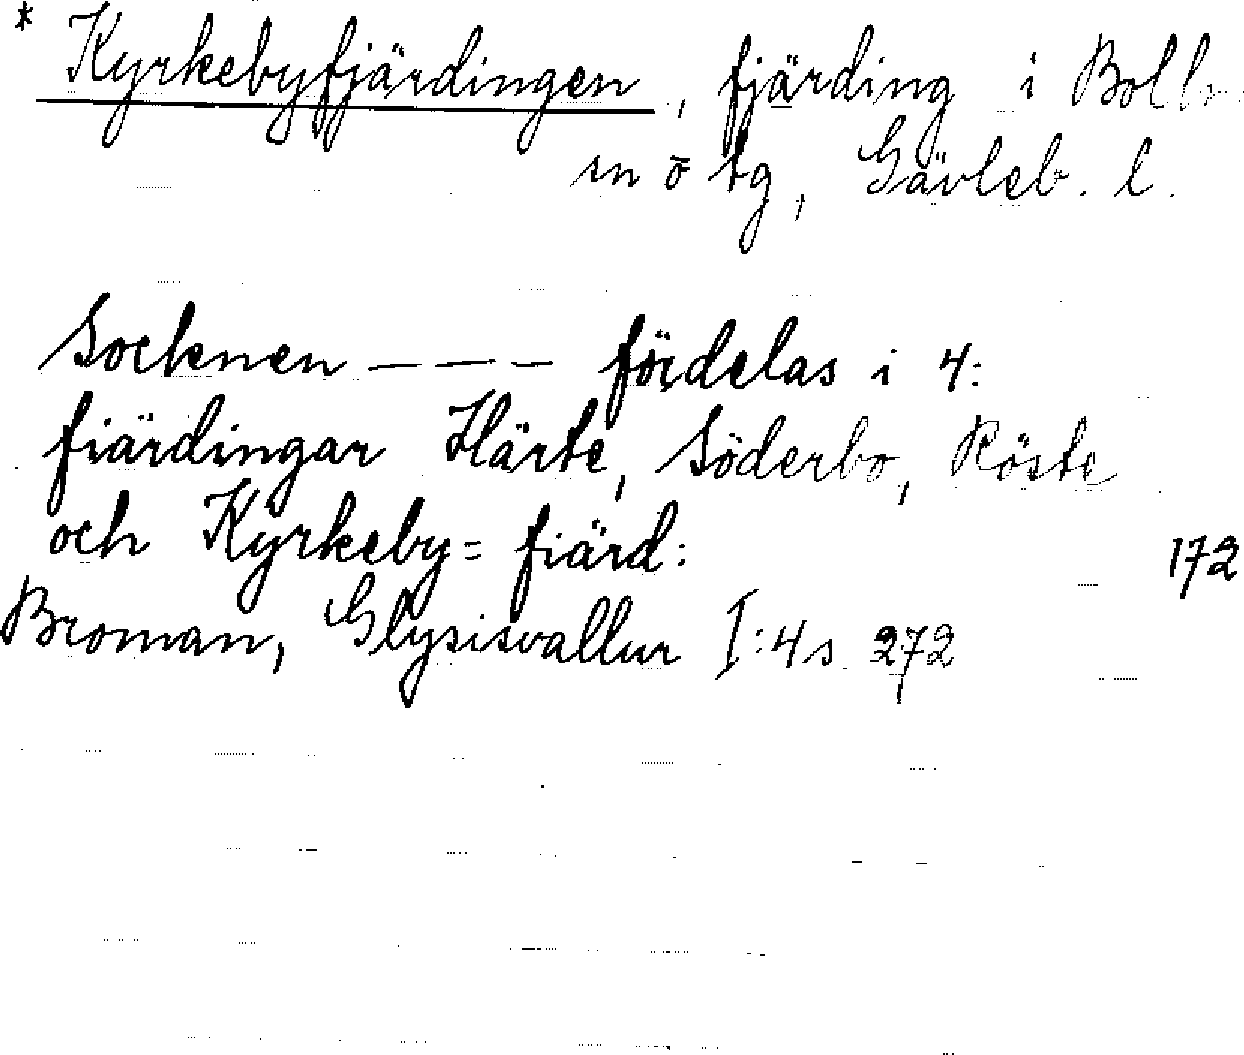 * Kyrkebyfjärdingen, fjärding i Bolln.
sn ö tg, Gävleb. l.
Socknen – – – fördelas i 4:
fiärdingar Härte, Söderbo, Röste
och Kyrkeby= fiärd: 172
Broman, Glysisvallur I:4 s 272